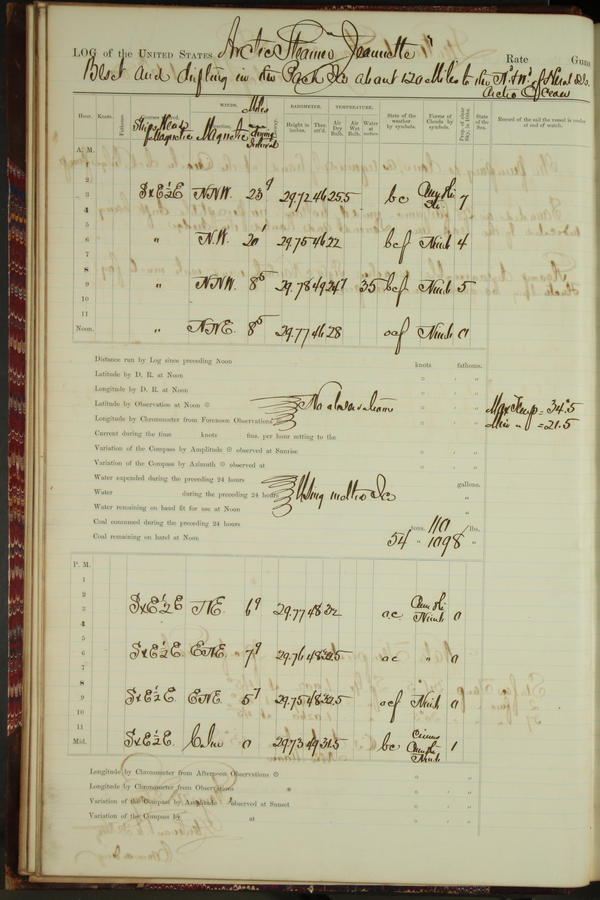 LOG of the UNITED STATES Arctic Steamer "Jeannette" Rate Guns
Beset and drifting in the Pack Ice about 120 Miles to the N'd & W'd of Herald Is.
Arctic Ocean
WINDS. Miles BAROMETER. TEMPERATURE.
Hour. Knots. Fathoms. Ships Head Magnetic Magnetic Height in inches. Ther. att'd. Air Dry Bulb. Air Wet Bulb. Water at State of the weather by symbols. Forms of Clouds by symbols. Prop. of clear Sky, in 10ths. State of the Sea. Record of the sail the vessel is under at end of watch.
A. M.
1
2
3 SxE½E NNW. 23⁹ 29.72 46 25.5 bc 7
4
5
6 " N.W. 20¹ 29.75 46 22 bcf Nimb 4
7
8
9 " NNW. 8⁵ 29.78 49 24¹ 35 bcf Nimb 5
10
11
Noon. " NNE. 8⁵ 29.77 46 28 ocf Nimb 0
Distance run by Log since preceding Noon knots fathoms.
Latitude by D. R. at Noon ° ' "
Longitude by D. R. at Noon ° ' "
Latitude by Observation at Noon ⊙ No observation ° ' " Max Temp = 34.5
Longitude by Chronometer from Forenoon Observations ° ' " Min " = 21.5
Current during the time knots fms. per hour setting to the
Variation of the Compass by Amplitude ⊙ observed at Sunrise ° ' "
Variation of the Compass by Azimuth ⊙ observed at ° ' "
Water expended during the preceding 24 hours gallons.
Water during the preceding 24 hours Using melted Ice "
Water remaining on hand fit for use at Noon "
Coal consumed during the preceding 24 hours tons. 110 lbs.
Coal remaining on hand at Noon 54 " 1098 "
P. M.
1
2
3 SxE½E NE. 6⁹ 29.77 48 32 oc Nimb 0
4
5
6 SxE½E. ENE. 7⁹ 29.76 48 32.5 oc " 0
7
8
9 SxE½E. ENE 5⁷ 29.75 48 32.5 ocf Nimb 0
10
11
Mid. SxE½E. Calm 0 29.73 49 31.5 bc Cirrus Nimb 1
Longitude by Chronometer from Afternoon Observations ⊙ ° ' "
Longitude by Chronometer from Observations * ° ' "
Variation of the Compass by Amplitude observed at Sunset ° ' "
Variation of the Compass by at ° ' "